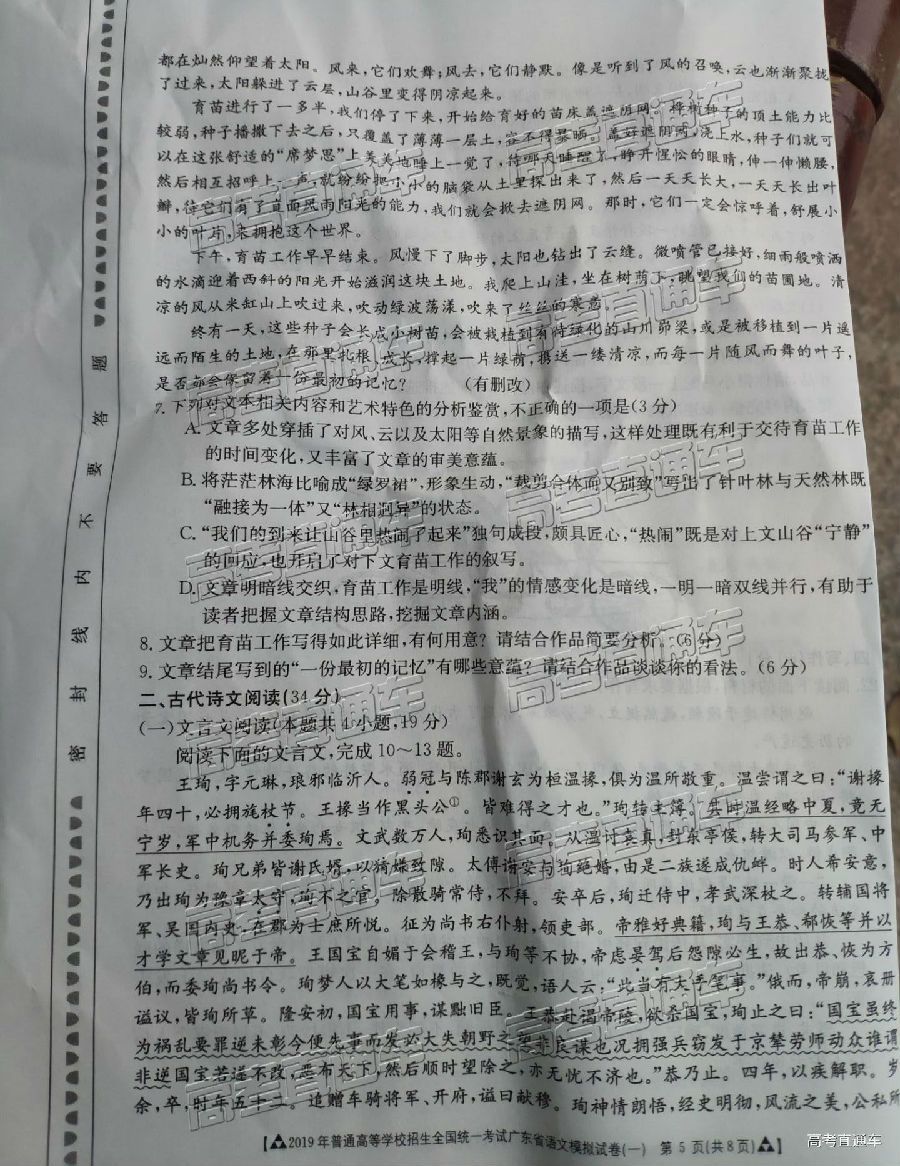 都在灿然仰望着太阳。风来,它们欢舞;风去,它们静默。像是听到了风的召唤,云也渐渐聚拢
了过来,太阳躲进了云层,山谷里变得阴凉起来。
育苗进行了一多半,我们停了下来,开始给育好的苗床盖遮阴网。桦树种子的顶土能力比
较弱,种子播撒下去之后,只覆盖了薄薄一层土,容不得暴晒。盖好遮阴网,浇上水,种子们就可
以在这张舒适的“席梦思”上美美地睡上一觉了,待哪天睡醒了,睁开惺忪的眼睛,伸一伸懒腰,
然后相互招呼上一声,就纷纷把小小的脑袋从土里探出来了,然后一天天长大,一天天长出叶
瓣,待它们有了直面风雨阳光的能力,我们就会掀去遮阴网。那时,它们一定会惊呼着,舒展小
小的叶片,来拥抱这个世界。
下午,育苗工作早早结束。风慢下了脚步,太阳也钻出了云缝。微喷管已接好,细雨般喷洒
的水滴迎着西斜的阳光开始滋润这块土地。我爬上山洼,坐在树荫下,眺望我们的苗圃地。清
凉的风从米缸山上吹过来,吹动绿波荡漾,吹来了丝丝的寒意。
终有一天,这些种子会长成小树苗,会被栽植到有待绿化的山川峁梁,或是被移植到一片遥
远而陌生的土地,在那里扎根、成长,撑起一片绿荫,携送一缕清凉,而每一片随风而舞的叶子,
是否都会保留着一份最初的记忆?(有删改)
7.下列对文本相关内容和艺术特色的分析鉴赏,不正确的一项是(3分)
A.文章多处穿插了对风、云以及太阳等自然景象的描写,这样处理既有利于交待育苗工作
的时间变化,又丰富了文章的审美意蕴。
B.将茫茫林海比喻成“绿罗裙”,形象生动,“裁剪合体而又别致”写出了针叶林与天然林既
“融接为一体”又“林相迥异”的状态。
C.“我们的到来让山谷里热闹了起来”独句成段,颇具匠心,“热闹”既是对上文山谷“宁静”
的回应,也开启了对下文育苗工作的叙写。
D.文章明暗线交织,育苗工作是明线,“我”的情感变化是暗线,一明一暗双线并行,有助于
读者把握文章结构思路,挖掘文章内涵。
8.文章把育苗工作写得如此详细,有何用意?请结合作品简要分析。(6分)
9.文章结尾写到的“一份最初的记忆”有哪些意蕴?请结合作品谈谈你的看法。(6分)
二、古代诗文阅读(34分)
(一)文言文阅读(本题共4小题,19分)
阅读下面的文言文,完成10~13题。
王珣,字元琳,琅邪临沂人。弱冠与陈郡谢玄为桓温掾,俱为温所敬重。温尝谓之曰:“谢掾
年四十,必拥旄杖节。王掾当作黑头公①。皆难得之才也。”珣转主簿。时温经略中夏,竟无
宁岁,军中机务并委珣焉。文武数万人,珣悉识其面。从温讨袁真,封东亭侯,转大司马参军、中
军长史。珣兄弟皆谢氏婿,以猜嫌致隙。太傅谢安与珣绝婚,由是二族遂成仇衅。时人希安意,
乃出珣为豫章太守,珣不之官。除散骑常侍,不拜。安卒后,珣迁侍中,孝武深杖之。转辅国将
军、吴国内史,在郡为士庶所悦。征为尚书右仆射,领吏部。帝雅好典籍,珣与王恭、郗恢等并以
才学文章见昵于帝。王国宝自媚于会稽王,与珣等不协,帝虑晏驾后怨隙必生,故出恭、恢为方
伯,而委珣尚书令。珣梦人以大笔如椽与之,既觉,语人云:“此当有大手笔事。”俄而,帝崩,哀册
谥议,皆珣所草。隆安初,国宝用事,谋黜旧臣。王恭赴谒帝陵,欲杀国宝,珣止之曰:“国宝虽终
为祸乱要罪逆未彰今便先事而发必大失朝野之望非良谋也况拥强兵窃发于京辇劳师动众谁谓
非逆国宝若遂不改,恶布天下,然后顺时望除之,亦无忧不济也。”恭乃止。四年,以疾解职。岁
余,卒,时年五十二。追赠车骑将军、开府,谥曰献穆。珣神情朗悟,经史明彻,风流之美,公私所
【2019年普通高等学校招生全国统一考试广东省语文模拟试卷(一) 第5页(共8页)】
密 封 线 内 不 要 答 题
高考直通车